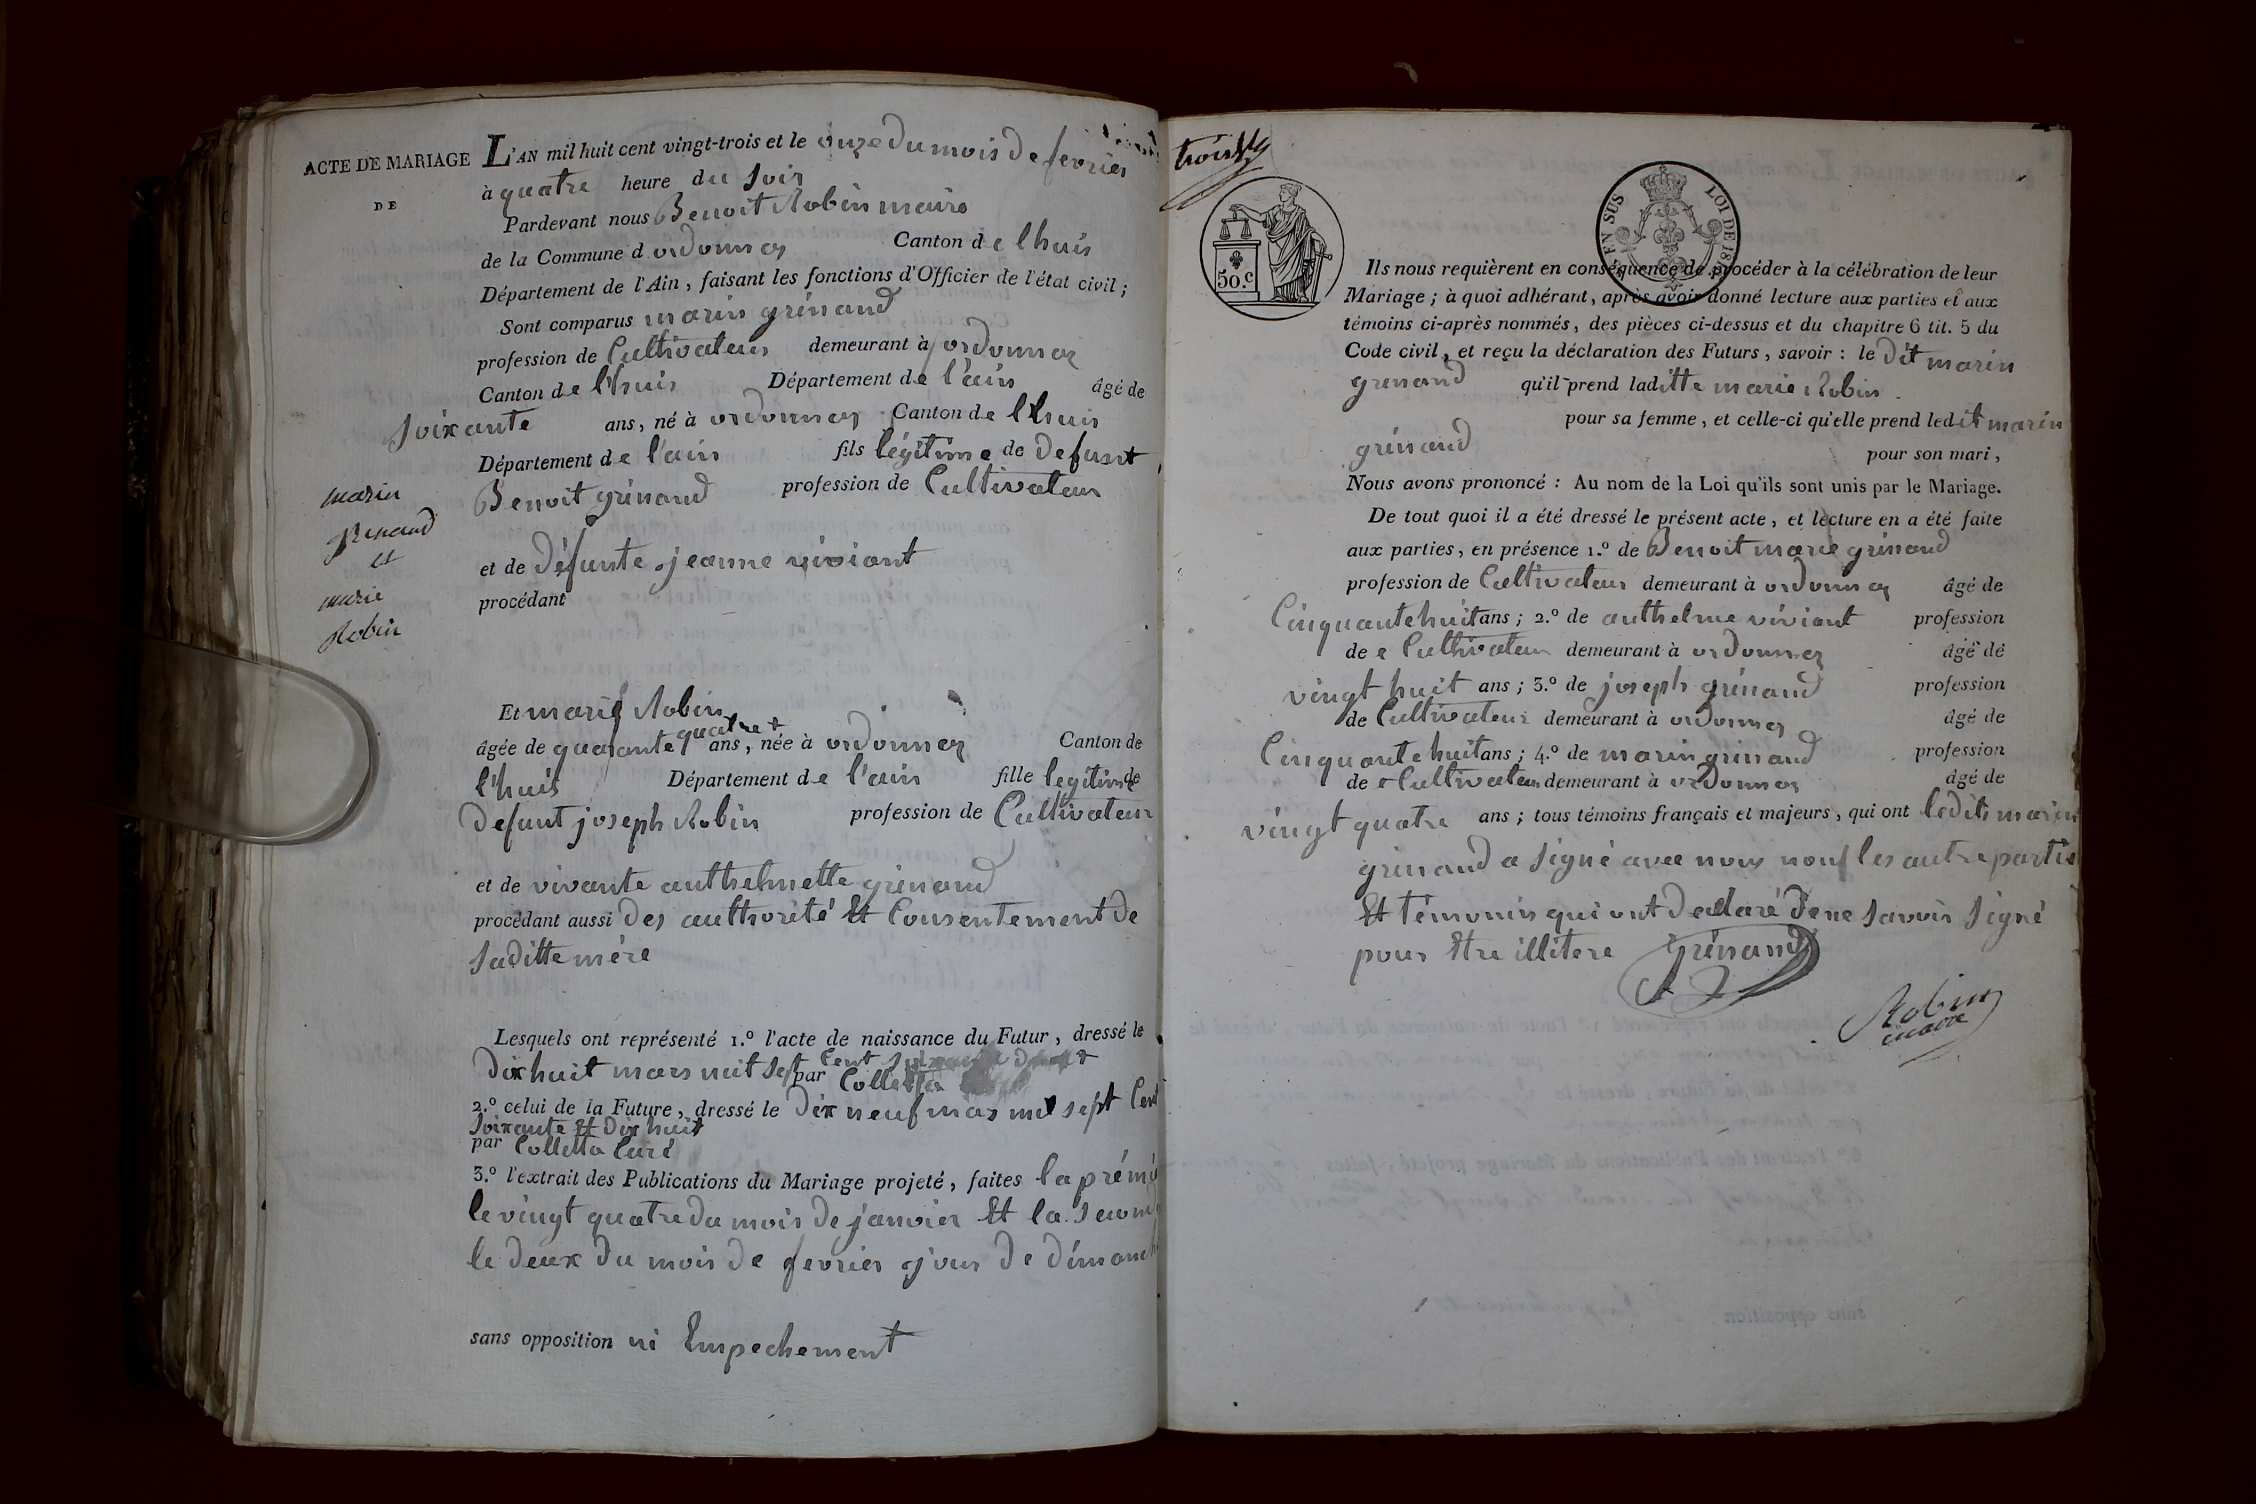 ACTE DE MARIAGE
DE
marin
grenaud
et
marie
Robin
L'AN mil huit cent vingt-trois et le onze du mois de fevrier
à quatre heure du soir
Pardevant nous Benoit Robin maire
de la Commune d ordonnas Canton de lhuis
Département de l'Ain, faisant les fonctions d'Officier de l'état civil;
Sont comparus marin grénaud
profession de Cultivateur demeurant à ordonnas
Canton de lhuis Département de l'ain âgé de
soixante ans, né à ordonnas Canton de lhuis
Département de l'ain fils légitime de defunt
Benoit grénaud profession de Cultivateur
et de défunte jeanne viviant
procédant
Et marie Robin
âgée de quarante quatre ans, née à ordonnas Canton de
l'huis Département de l'ain fille legitime de
defunt joseph Robin profession de Cultivateur
et de vivante anthelmette grénaud
procédant aussi des authorité Et Consentement de
saditte mère
Lesquels ont représenté 1.º l'acte de naissance du Futur, dressé le
dix huit mars mil sept Cent soixante
par Colletta
2.º celui de la Future, dressé le dix neuf mas mil sept Cent
soixante Et dix huit
par Colletta Curé
3.º l'extrait des Publications du Mariage projeté, faites la prémi
le vingt quatre du mois de janvier Et la second
le deux du mois de fevrier jour de dimanch
sans opposition ni Empechement
trois
50.c
EN SUS
LOI DE 18
Ils nous requièrent en conséquence de procéder à la célébration de leur
Mariage; à quoi adhérant, après avoir donné lecture aux parties et aux
témoins ci-après nommés, des pièces ci-dessus et du chapitre 6 tit. 5 du
Code civil, et reçu la déclaration des Futurs, savoir: le dit marin
grenaud qu'il prend laditte marie Robin
pour sa femme, et celle-ci qu'elle prend ledit marin
grénaud pour son mari,
Nous avons prononcé: Au nom de la Loi qu'ils sont unis par le Mariage.
De tout quoi il a été dressé le présent acte, et lecture en a été faite
aux parties, en présence 1.º de Benoit marie grénaud
profession de Cultivateur demeurant à ordonnas âgé de
Cinquante huit ans; 2.º de anthelme viviant profession
de Cultivateur demeurant à ordonnas âgé de
vingt huit ans; 3.º de joseph grénaud profession
de Cultivateur demeurant à ordonnas âgé de
Cinquante huit ans; 4.º de marin grinaud profession
de Cultivateur demeurant à ordonnas âgé de
vingt quatre ans; tous témoins français et majeurs, qui ont ledit marin
grinaud a signé avec nous nonf les autre partie
Et témonin qui ont declaré dene savoir signé
pour Etre illitere Grénaud
Robin
maire